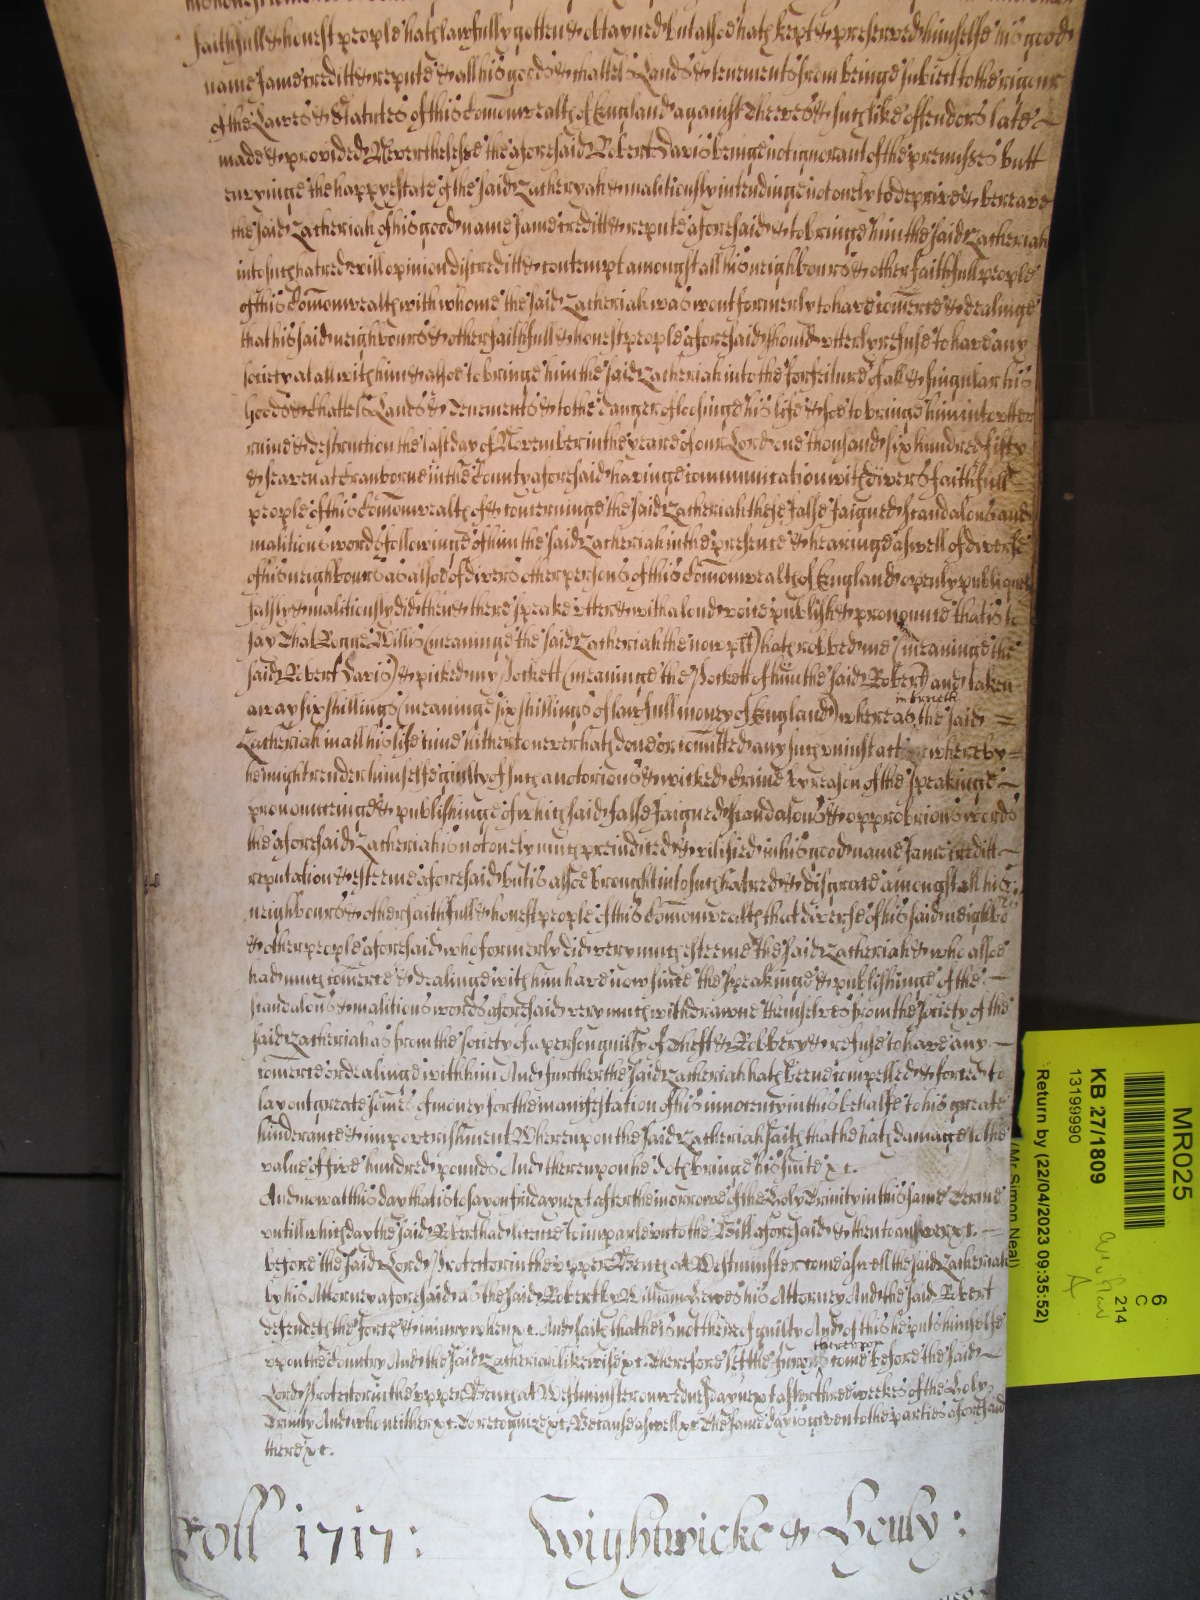 faithfull & honest people hath lawfully gotten & obtayned but alsoe hath kept & preserved himselfe his good
name fame creditt & repute & all his goods & chattels Lands & tenements from beinge subiect to the rigour
of the Lawes & Statutes of this Comonwealth of England against Theeves & such like offendors late
made & provided Neverthelesse the aforesaid Robert Davis beinge not ignorant of the premisses butt
envyinge the happy estate of the said Zacheryah & malitiously intendinge not onely to deprive & bereave
the said Zacheriah of his good name fame creditt & repute aforesaid & to bringe him the said Zacheriah
into such hatred evill opinion discreditt & contempt amongst all his neighbours & other faithfull people
of this Comonwealth with whome the said Zacheriah was wont formerly to have comerce & dealinge
that his said neighbours & other faithfull & honest people aforesaid should utterly refuse to have any
society at all with him & alsoe to bringe him the said Zacheriah into the forfeiture of all & singular his
Goods & Chattels Lands & Tenements & to the danger of loosinge his life & soe to bringe him into utter
ruine & destruction the last day of November in the yeare of our Lord one thousand six hundred fifty
& seaven at Cranborne in the County aforesaid havinge communication with divers faithfull
people of this Comonwealth of & concerninge the said Zacheriah these false faigned scandalous and
malitious words followinge of him the said Zacheriah in the presence & hearinge aswell of diverse
of his neighbours as alsoe of divers other persons of this Comonwealth of England openly publiquely
falsly & malitiously did then & there speake utter & with a loud voice publish & pronounce that is to
say That Rogue Willis (meaninge the said Zacheriah the now plt) hath robbed me (meaninge the
said Robert Davis) & picked my Pockett (meaninge the Pockett of him the said Robert) and taken
away six shillings (meaninge six shillings of lawfull money of England) whereas in trueth the said
Zacheriah in all his life time hitherto never hath done or comitted any such uniust act whereby
he might render himselfe guilty of such a notorious & wicked Crime by reason of the speakinge
pronounceinge & publishinge of which said false faigned scandalous & opprobrious words
the aforesaid Zacheriah is not onely much preiudiced & vilified in his good name fame creditt
reputation & esteeme aforesaid but is alsoe brought into such hatred & disgrace amongst all his
neighbours & other faithfull & honest people of this Comonwealth that diverse of his said neighbors
& other people aforesaid who formerly did very much esteeme the said Zacheriah & who alsoe
had much comerce & dealinge with him have now since the speakinge & publishinge of the
scandalous & malitious words aforesaid very much withdrawne themselves from the society of the
said Zacheriah as from the society of a person guilty of Theft & Robbery & refuse to have any
comerce or dealinge with him And further the said Zacheriah hath beene compelled & forced to
lay out greate somes of money for the manifestation of his innocency in this behalfe to his greate
hinderance & impoverishment Whereupon the said Zacheriah saith that he hath damage to the
value of five hundred pounds And thereupon he doth bringe his suite &c.
And now at this day that is to say on friday next after the morrowe of the Holy Trinity in this same Terme
untill which day the said Robert had licence to imparle unto the Bill aforesaid & then to answer &c.
before the said Lord Protector in the upper Bench at Westminster come aswell the said Zacheriah
by his Attorney aforesaid as the said Robert by William his Attorney And the said Robert
defendeth the force & iniury when &c. And saith that he is not thereof guilty And of this he puts himselfe
upon the Country And the said Zacheriah likewise &c. Therefore lett the Jurors thereupon come before the said
Lord Protector in the upper Bench at Westminster on wednesday next after three weekes of the Holy
Trinity And who neither &c. To recognize &c. Because aswell &c. The same day is given to the parties aforesaid
there &c.
roll 1717: Wightwicke & Henly:
MR025
6
C
214
KB 27/1809
13199990
(Mr Simon Neal)
Return by (22/04/2023 09:35:52)